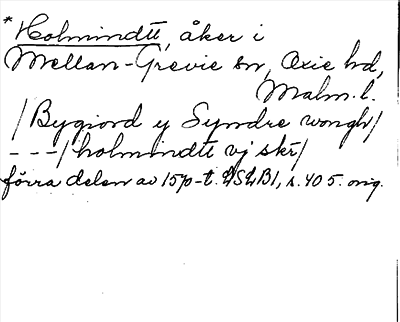 *Holmindtt, åker i
Mellan-Grevie sn, Oxie hd,
Malm.l.
/Bygiord y Syndre wongh/
---/holmindtt vj skr/
förra delen av 1570-t. LSLB1, s. 405. orig.